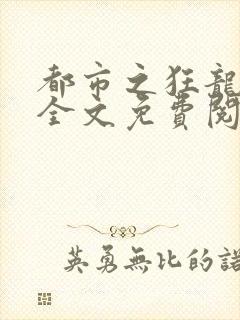 都市之狂龍
全文免費閱
英勇無比的諾